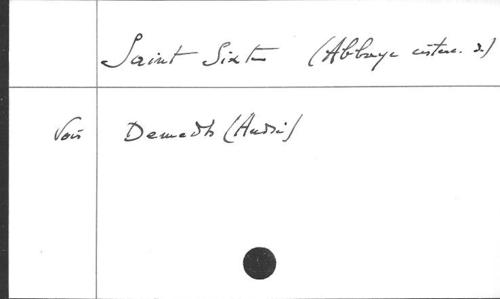 Saint Sixte (Abbaye cisterc. de)
Voir Demedts (André)